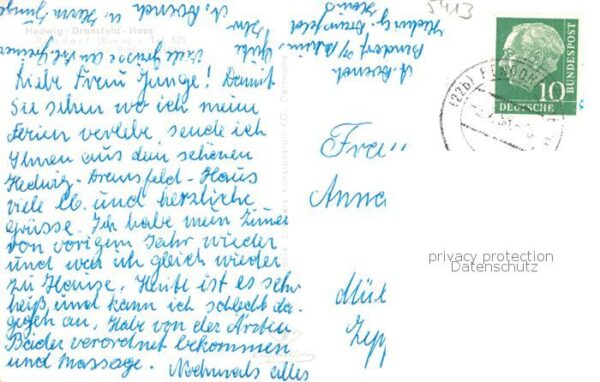 Hedwig-Dransfeld-Haus
Liebe Frau Junge! Damit
Sie sehen wo ich meine
Ferien verlebe sende ich
Ihnen aus dem schönen
Hedwig-Dransfeld-Haus
viele lb. und herzliche
Grüsse. Ich habe mein Zimer
von vorigem Jahr wieder
und war ich gleich wieder
zu Hause. Heute ist es sehr
heiß und kann ich schlecht da-
gegen an. Habe von der Ärztin
Bäder verordnet bekommen
und Massage. Nochmals alles
Gute
Ihre
A. Boench
Viele Grüsse an
u. Herrn Junge
A. Boench
Bendorf a/Rhein
Hedwig Dransfeld
Haus
5413
10
DEUTSCHE
BUNDESPOST
(22b) BENDORF
Frau
Anna
Mül
Zepp
privacy protection
Datenschutz